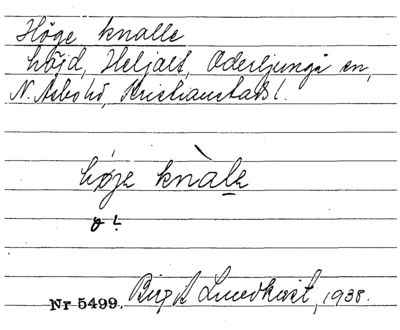 Höge knalle
höjd, Heljalt, Oderljunga sn,
N. Åsbo hd, Kristianstads l.
høje knàle
Nr 5499. Birgit Lundkvist, 1938.